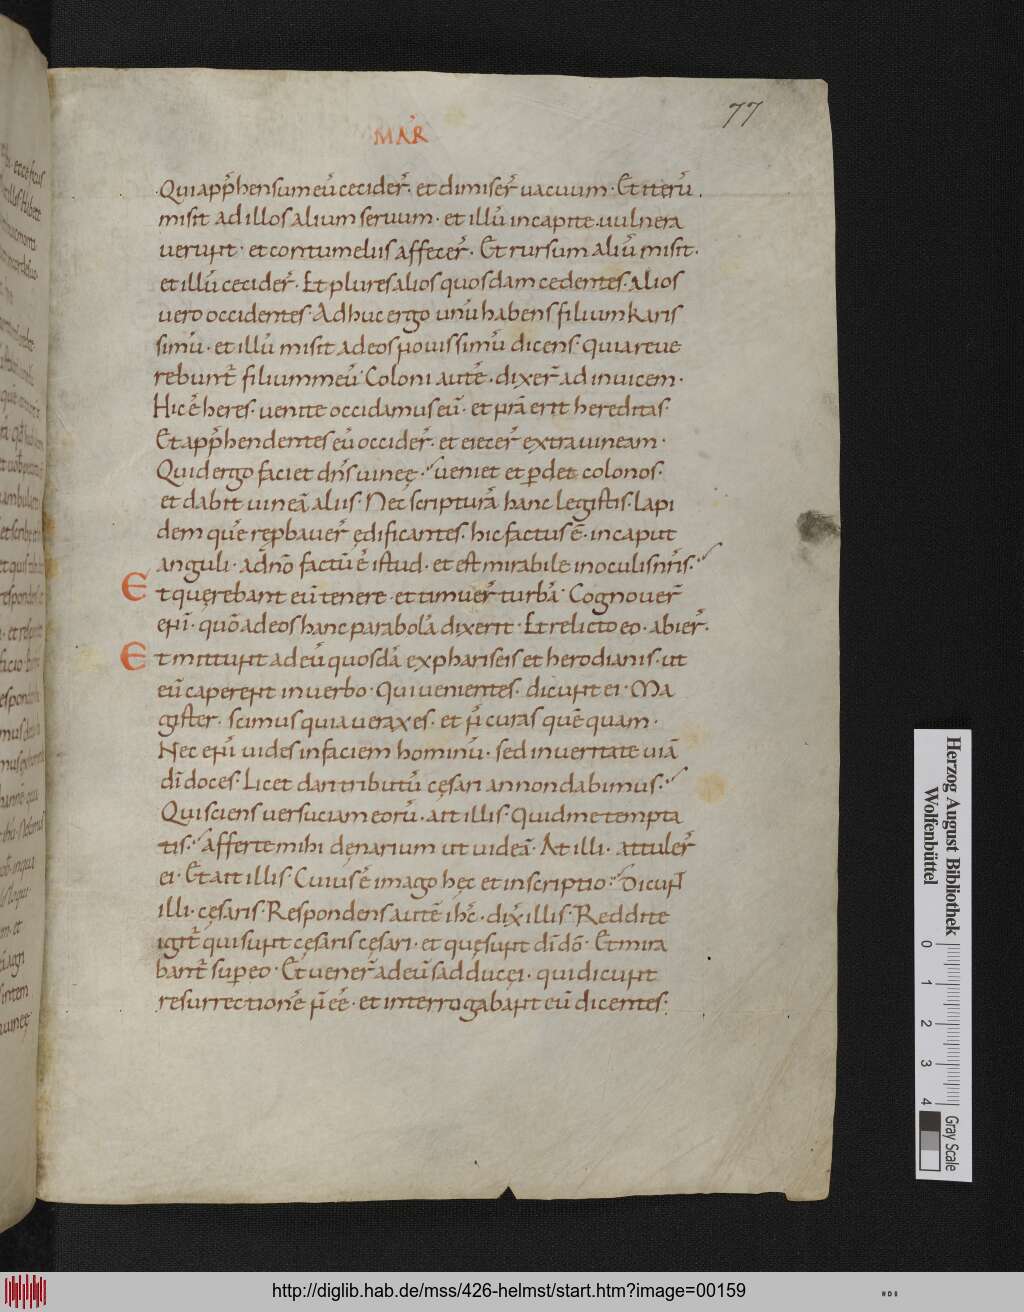 77
MAR̄
Qui app̄hensum eū cecider̄. et dimiser̄ vacuum. Et iterū
misit ad illos alium seruum. et illū in capite uulnera
uerunt. et contumeliis affecer̄. Et rursum aliū misit.
et illū cecider̄. Et plures alios quosdam cedentes. alios
uero occidentes. Adhuc ergo unū habens filium karis
simū. et illū misit ad eos nouissimū dicens. Quia reue
rebunt̄ filium meū. Coloni autē. dixer̄ ad inuicem.
Hic ē heres. uenite occidamus eū. et nr̄a erit hereditas.
Et app̄hendentes eū occider̄. et eiecer̄ extra uineam.
Quid ergo faciet dn̄s uineę. ueniet et ꝑdet colonos.
et dabit uineā aliis. Nec scripturā hanc legistis. Lapi
dem quē rep̱bauer̄ ędificantes. hic factus ē. in caput
anguli. a dn̄o factū ē istud. et est mirabile in oculis nr̄is.
Et quęrebant eū tenere. et timuer̄ turbā. Cognouer̄
enī. qm̄ ad eos hanc parabolā dixerit. Et relicto eo. abier̄.
Et mittunt ad eū quosdā ex phariseis et herodianis. ut
eū caperent in uerbo. Qui uenientes. dicunt ei. Ma
gister. scimus quia uerax es. et n̄ curas quēquam.
Nec enī uides in faciem hominū. sed in ueritate uiā
dī doces. Licet dari tributū cęsari an non dabimus.
Qui sciens uersuciam eorū. ait illis. Quid me tempta
tis. Afferte mihi dęnarium ut uideā. At illi. attuler̄
ei. Et ait illis. Cuius ē imago hęc et inscriptio. Dicunt
illi. cęsaris. Respondens autē ihc̄. dix̄ illis. Reddite
igit̄ qui sunt cęsaris cęsari. et quę sunt dī dō. Et mira
bant̄ sup̱ eo. Et uener̄ ad eū sadducęi. qui dicunt
resurrectionē n̄ eē. et interrogabant eū dicentes.
Herzog August Bibliothek
Wolfenbüttel
0 1 2 3 4
Gray Scale
http://diglib.hab.de/mss/426-helmst/start.htm?image=00159